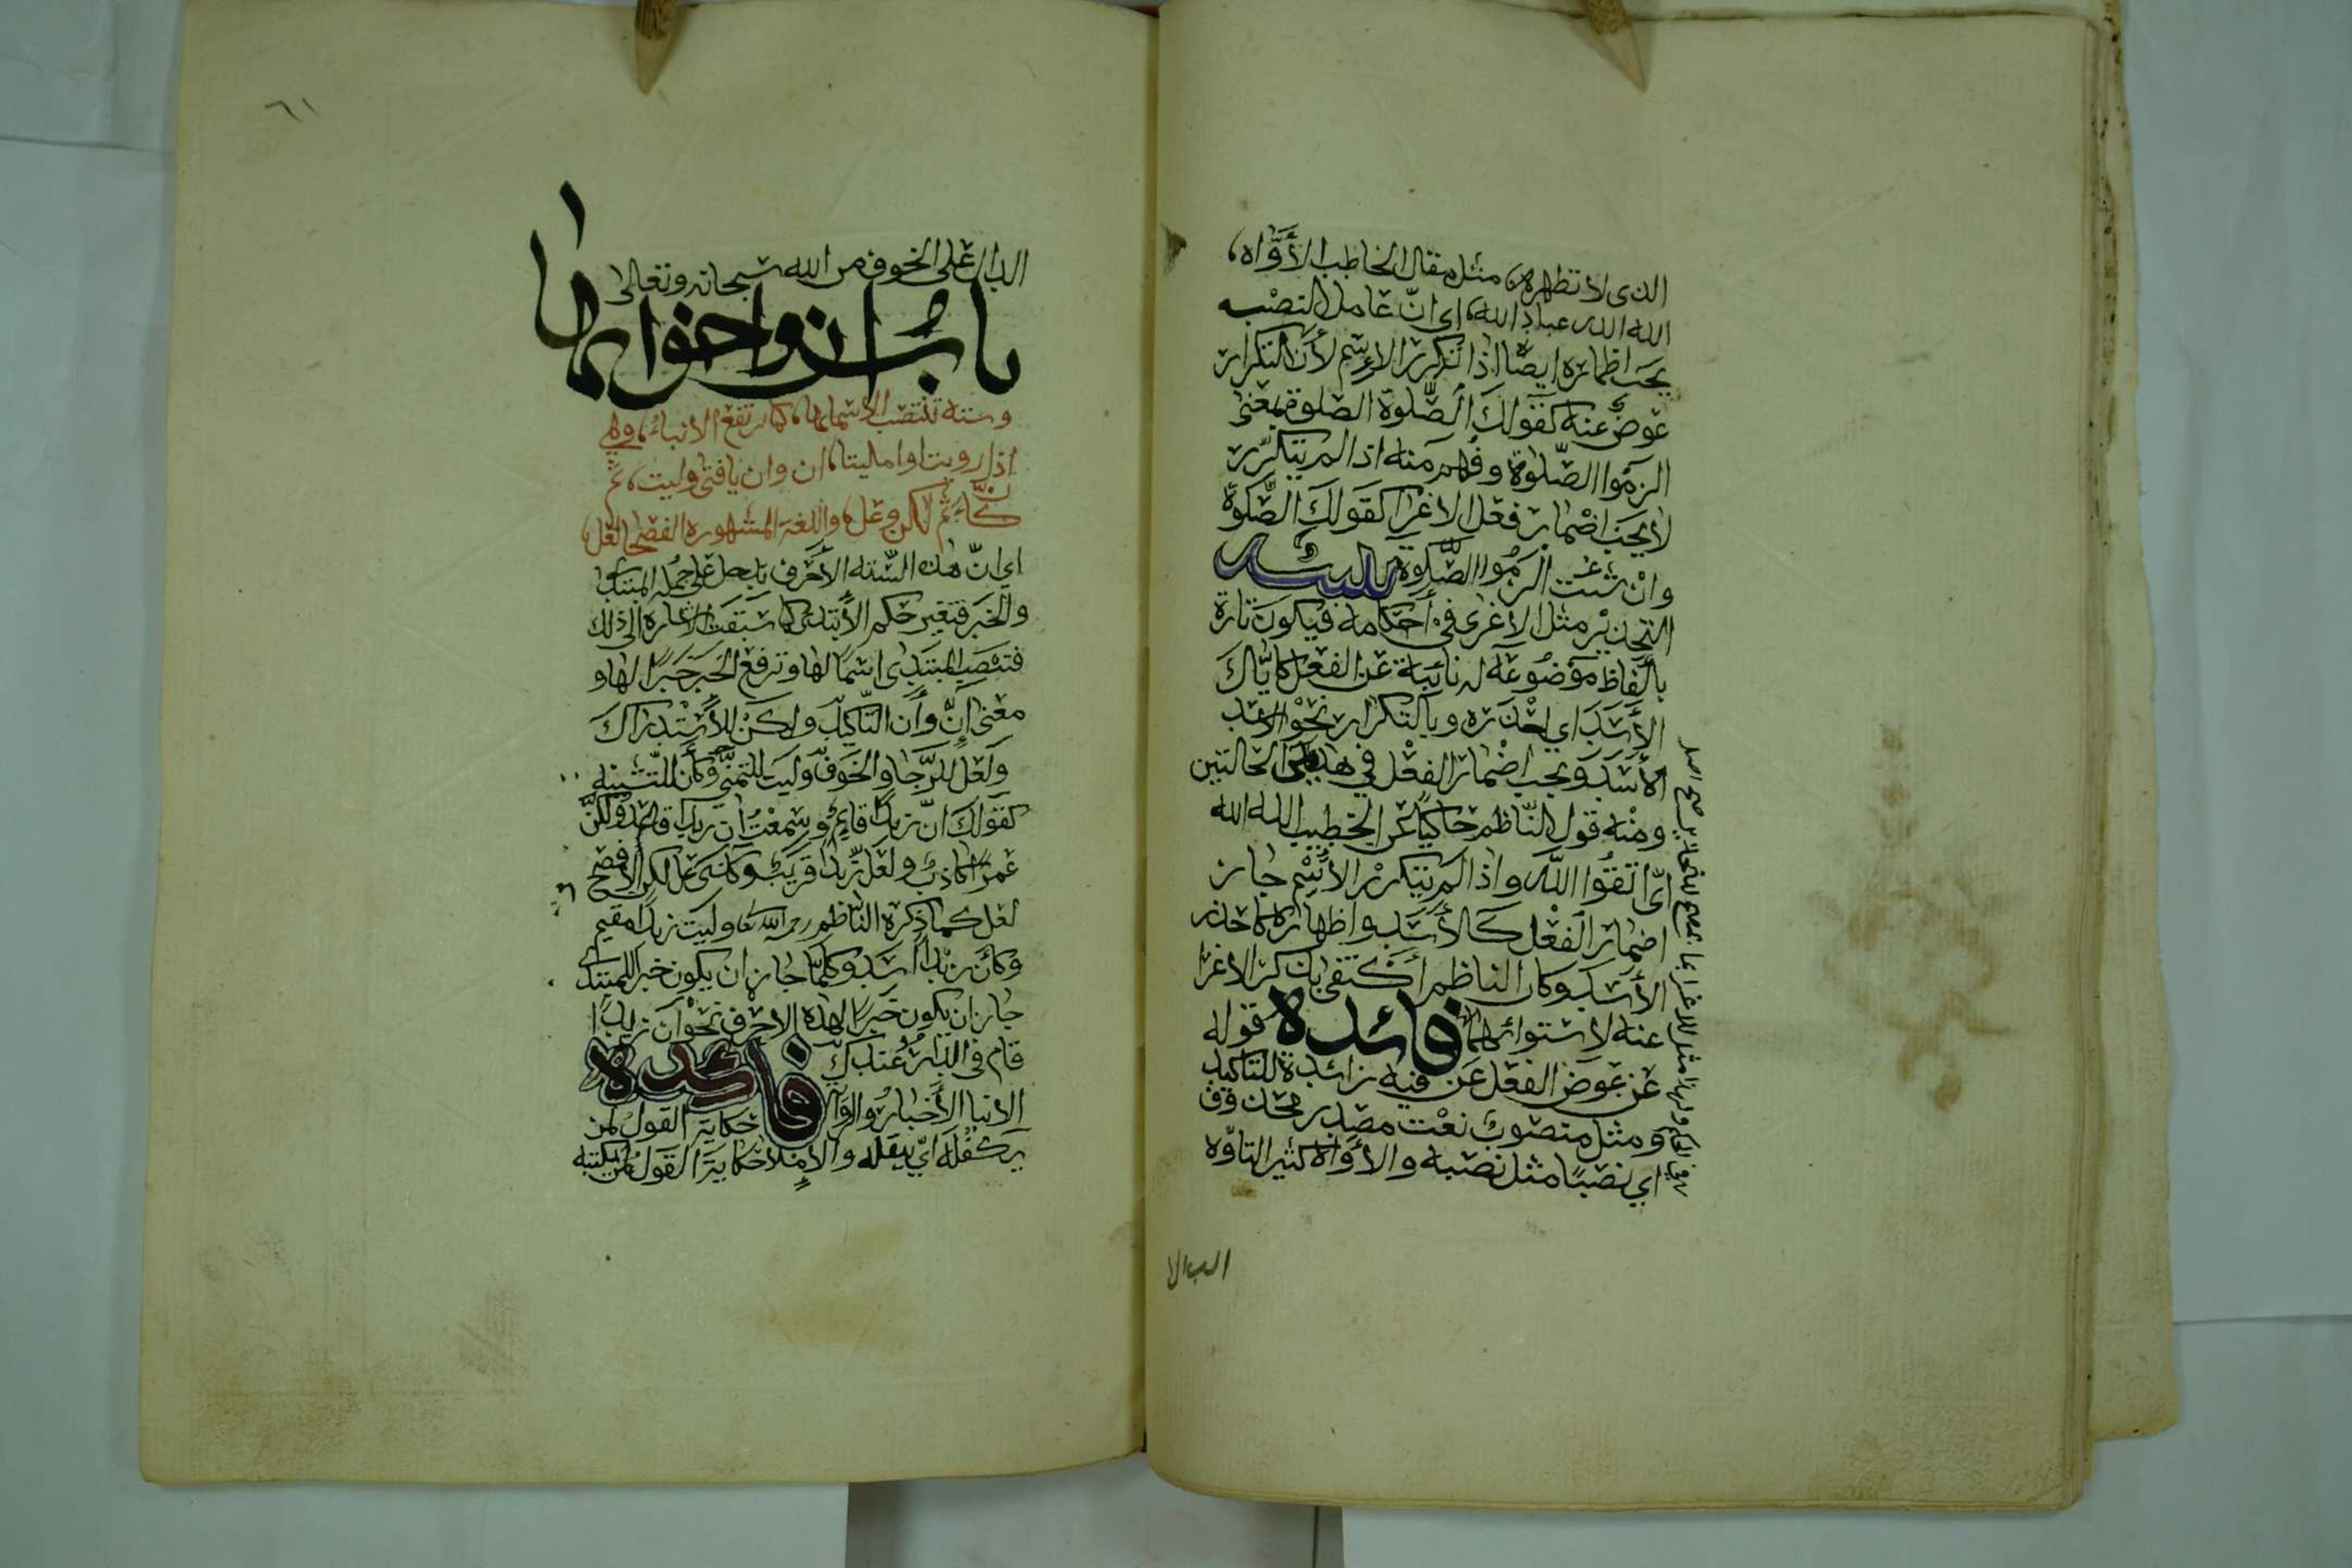 الذي لا تظهره، مثل مقال الخاطب الأوّاه،
الله الله عباد الله، اي انّ عامل النصب
يجب اظماره ايضًا اذا تكرر الإسم لأن التكرار
عوضٌ عنه كقولك الصَّلوة الصلوة بمعنى
الزموا الصّلوة وفهم منه اذا لم يتكرّر
لا يجب اضمار فعل الاغرا كقولك الصَّلوة
وان شئت الزمُوا الصَّلوة
التحذير مثل الاغرى في أحكامه فيكون تارة
بألفاظ موضوعة له نائبة عن الفعل كإيّاك
الأسَد اي احذره وبالتكرار نحو الاسد
الأسد ويجب اضمار الفعل في الحالتين
ومنه قول النّاظم حاكيًا عن الخطيب الله الله
ايّ اتقُوا اللّه واذا لم يتكرر الأسم جاز
اضمار الفعل كالأسَد واظهاره كاحذر
الأسَد وكان الناظم أكتفى بذكر الاغرا
عنه لاستوائهما فائده قوله
عن عوض الفعل عن فيه زائدة للتأكيد
ومثل منصوب نعت مصدر محذوف
اي نصبًا مثل نصبه والأوّاه كثير التاوّه
الدال
٦١
الدال على الخوف من الله سبحانه وتعالى
باب ان واخواتها
وستة تنتصب الاسما بها، كما ترتفع الانباء، وهي
اذا رويت او امليتا، ان وان يا فتى وليت، ثم
كأنّ ثم لكن وعل، واللغة المشهوره الفصحا لعل،
اي انّ هذه الستّه الأحرف تدخل على جملة المبتدا
والخبر فتغير حكم الأبتدى كما سبقت الاشاره الى ذلك
فتنصب المبتدى اسمًا لها وترفع الخبر خبرًا لها و
معنى إنّ وأن التّاكيد ولكن للأستدراك
ولعل للرّجا والخوف وليت للتمنّي وكأن للتّشبيه
كقولك انّ زيدًا قايمٌ وسمعتُ ان زيدا قائمٌ ولكنّ
عمرًا كاذبٌ ولعل زيدًا قريبٌ وعل لكن الأفصح
لعل كما ذكره النّاظم رحمه الله تعا وليت زيدًا مقيم
وكأن زيدًا أسَد وكلّما جاز ان يكون خبر للمبتدا
جاز ان يكون خبرًا لهذه الاحرف نحو ان زيدًا
قام في الدّار عندك فائده
الانبا الأخبارُ والروايه حكاية القول لمن
ينقله اي ينقله والإملا حكاية القول لمن يكتبه